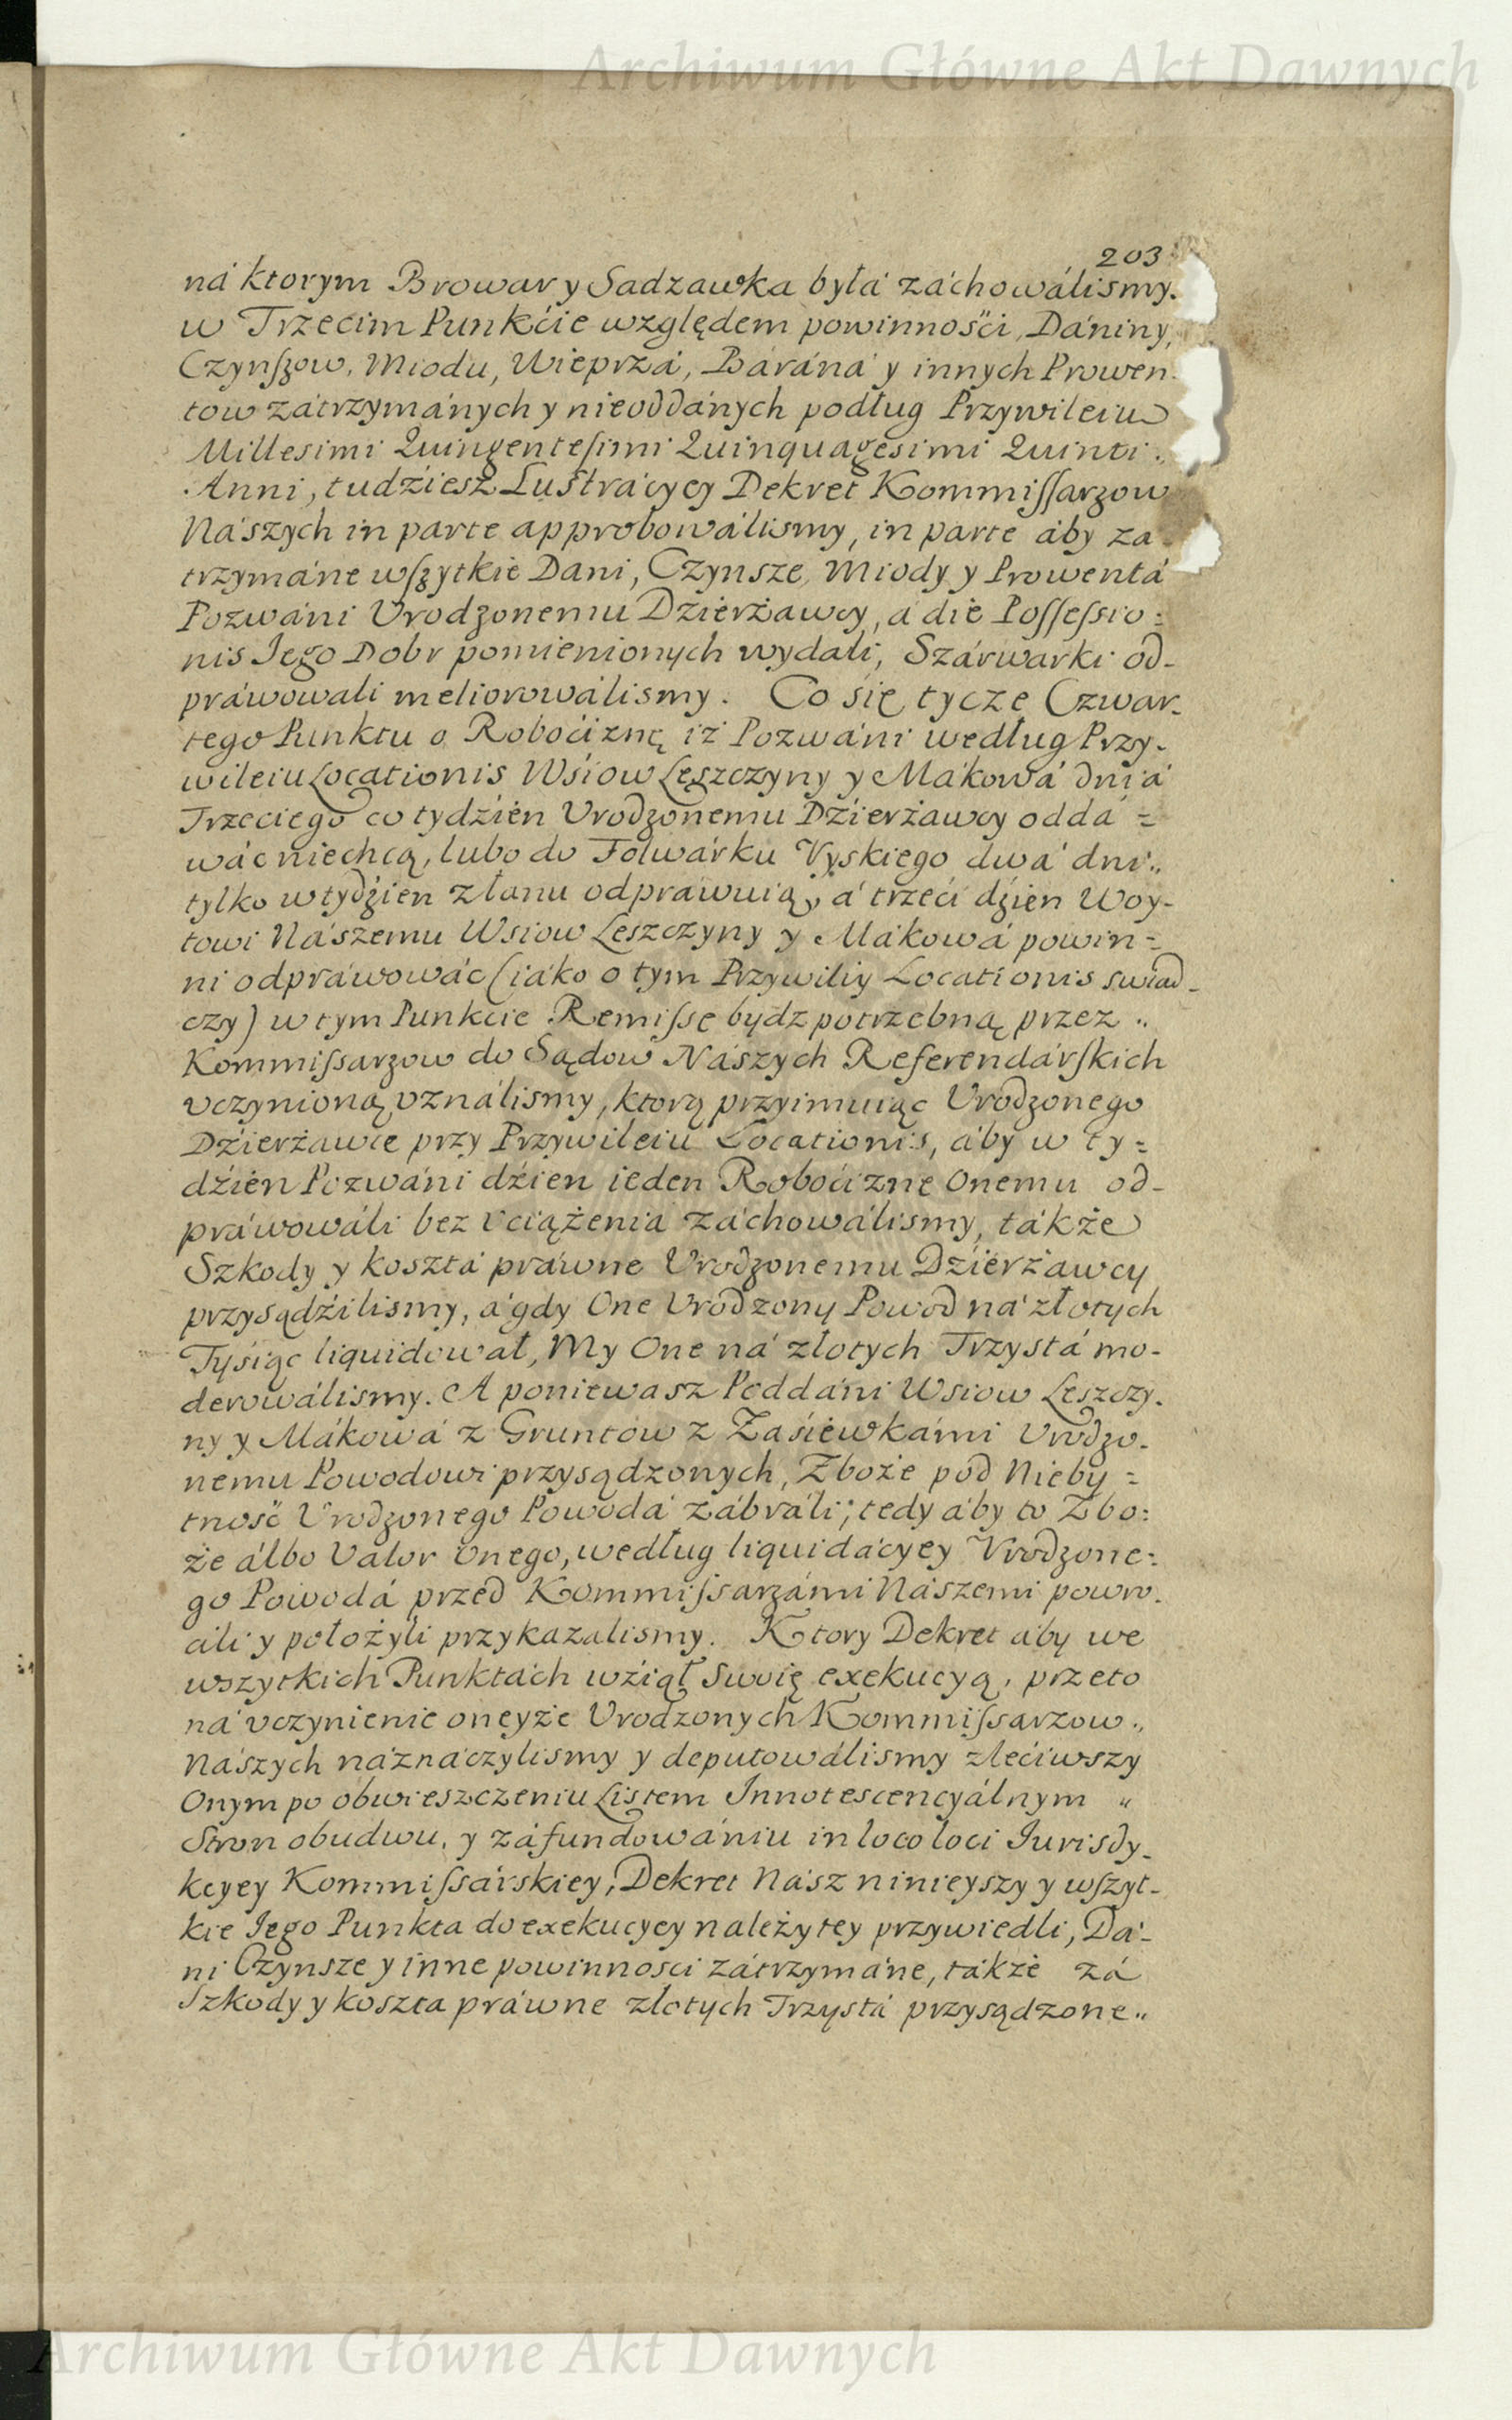 Archiwum Główne Akt Dawnych
203
ná ktorym Browar y Sadzawka byłá záchowálismy.
w Trzecim Punkcie względem powinnosci, Dániny,
Czynszow, Miodu, Wieprzá, Báráná y innych Prowen-
tow zátrzymánych y nieoddánych podług Przywileiu
Millesimi Quingentesimi Quinquagesimi Quinti „
Anni, tudziesz Lustrácyey Dekret Kommissarzow
Nászych in parte approbowálismy, in parte áby zá-
trzymáne wszytkie Dani, Czynsze, Miody y Prowentá
Pozwáni Urodzonemu Dzierżawcy, á die Possessio:
nis Iego Dobr pomienionych wydali, Szárwarki od-
práwowali meliorowálismy. Co się tycze Czwar-
tego Punktu o Robociznę iż Pozwáni według Przy-
wileiu Locationis Wsiow Leszczyny y Mákowá dniá
Trzeciego co tydzien Urodzonemu Dzierżawcy oddá =
wác niechcą, lubo do Folwárku Vyskiego dwá dni „
tylko w tydzien z łanu odprawuią, á trzeci dzien Woy-
towi Nászemu Wsiow Leszczyny y Mákowá powin=
ni odpráwowác (iáko o tym Przywiliy Locationis swiad-
czy) w tym Punkcie Remisse bydz potrzebną przez „
Kommissarzow do Sądow Nászych Referendárskich
vczynioną vználismy, ktorą przyimuiąc Urodzonego
Dzierżawce przy Przywileiu Locationis, áby w ty=
dzien Pozwáni dzien ieden Robocizne Onemu od-
práwowáli bez vciążenia záchowálismy, tákże
Szkody y kosztá práwne Urodzonemu Dzierżawcy
przysądzilismy, á gdy One Urodzony Powod ná złotych
Tysiąc liquidował, My One ná złotych Trzystá mo-
derowálismy. A poniewasz Poddáni Wsiow Leszczy-
ny y Mákowá z Gruntow z Zasiewkámi Urodzo-
nemu Powodowi przysądzonych, Zboże pod Nieby=
tnosc Urodzonego Powodá zábráli; tedy áby to Zbo:
że álbo Valor onego, według liquidácyey Vrodzone:
go Powodá przed Kommissarzámi Nászemi powro-
cili y położyli przykazalismy. Ktory Dekret áby we
wszytkich Punktách wziął swoię exekucyą, przeto
ná vczynienie oneyże Urodzonych Kommissarzow „
Nászych náznáczylismy y deputowálismy zleciwszy
Onym po obwieszczeniu Listem Innotescencyálnym „
Stron obudwu, y záfundowániu in loco loci Iurisdy-
kcyey Kommissárskiey, Dekret Nász ninieyszy y wszyt-
kie Iego Punkta do exekucyey należytey przywiedli, Dá-
ni Czynsze y inne powinnosci zátrzymáne, tákże zá
Szkody y koszta práwne złotych Trzystá przysądzone „
Archiwum Główne Akt Dawnych